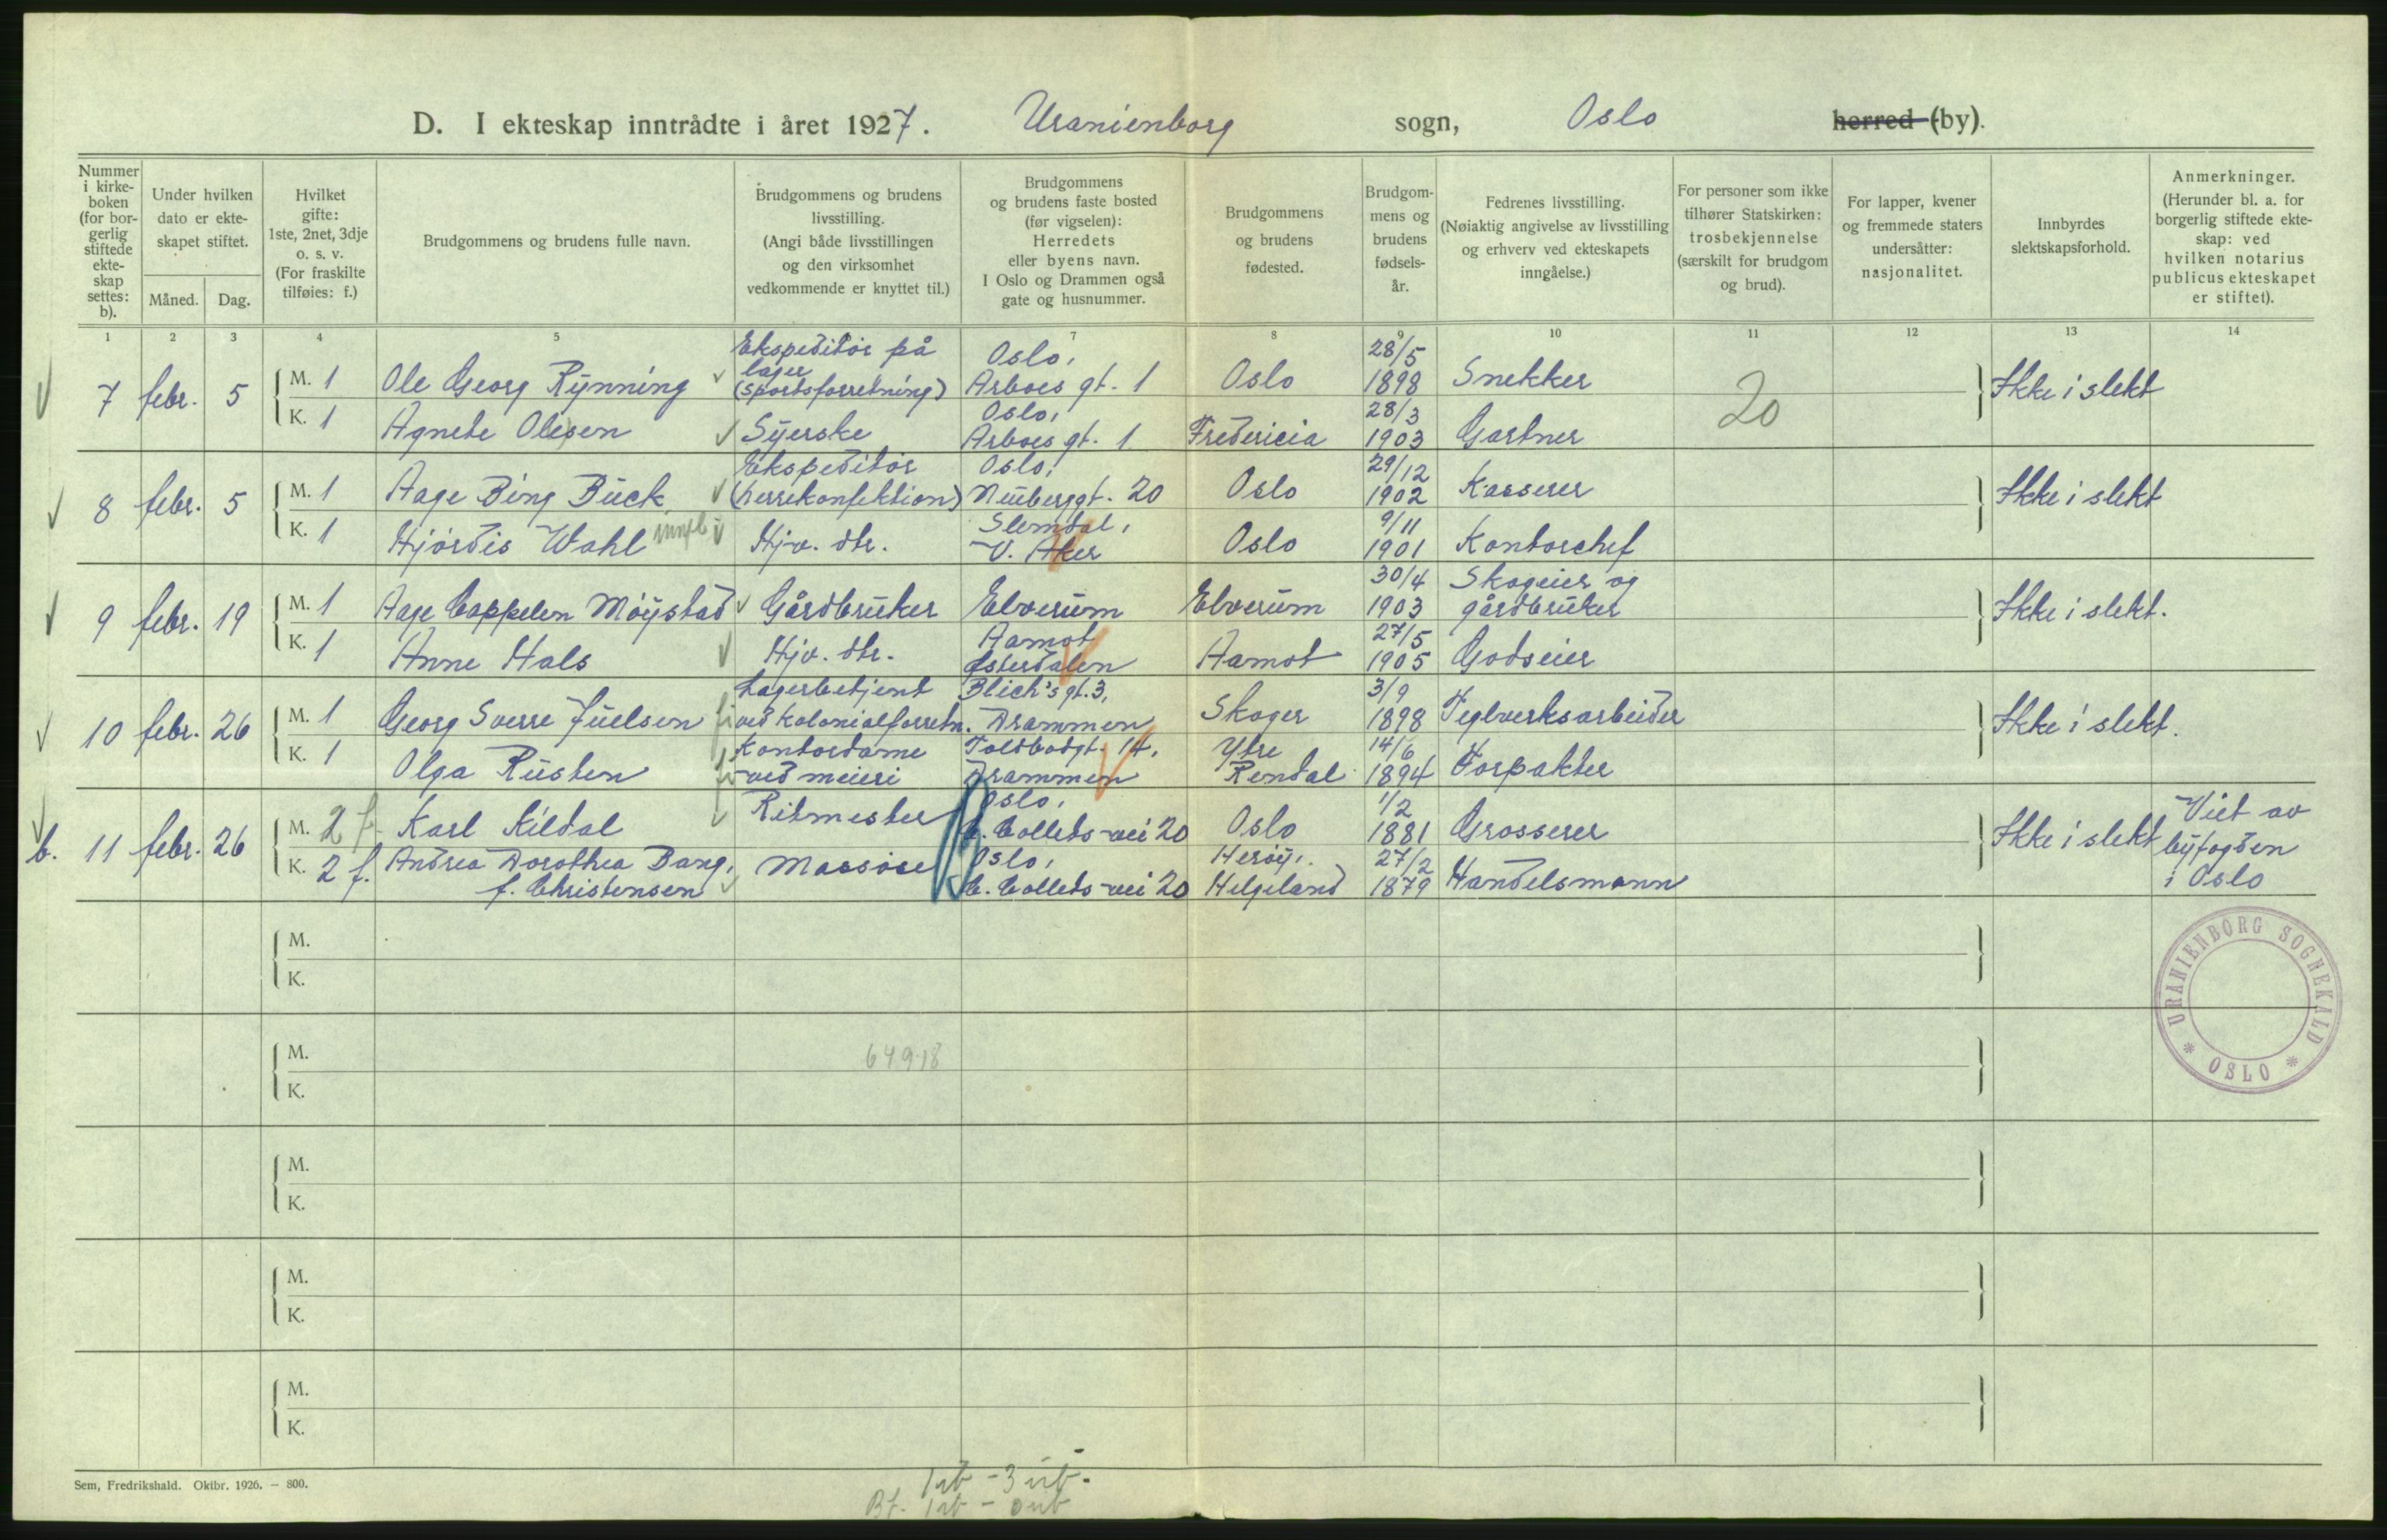 D. I ekteskap inntrådte i året 1927. Uranienborg sogn, Oslo herred (by).
Nummer i kirke-boken (for bor-gerlig stiftede ekte-skap settes: b).
Under hvilken dato er ekte-skapet stiftet.
Måned. Dag.
Hvilket gifte: 1ste, 2net, 3dje o. s. v. (For fraskilte tilføies: f.)
Brudgommens og brudens fulle navn.
Brudgommens og brudens livsstilling. (Angi både livsstillingen og den virksomhet vedkommende er knyttet til.)
Brudgommens og brudens faste bosted (før vigselen): Herredets eller byens navn. I Oslo og Drammen også gate og husnummer.
Brudgommens og brudens fødested.
Brudgom-mens og brudens fødsels-år.
Fedrenes livsstilling. (Nøiaktig angivelse av livsstilling og erhverv ved ekteskapets inngåelse.)
For personer som ikke tilhører Statskirken: trosbekjennelse (særskilt for brudgom og brud).
For lapper, kvener og fremmede staters undersåtter: nasjonalitet.
Innbyrdes slektskapsforhold.
Anmerkninger. (Herunder bl. a. for borgerlig stiftede ekte-skap: ved hvilken notarius publicus ekteskapet er stiftet).
1 2 3 4 5 6 7 8 9 10 11 12 13 14
7 febr. 5 M. 1 Ole Georg Rynning Ekspeditør på lager (sportsforretning) Oslo, Arboes gt. 1 Oslo 28/5 1898 Snekker 20 Ikke i slekt
K. 1 Agnete Olesen Syerske Oslo, Arboes gt. 1 Fredericia 28/3 1903 Gartner
8 febr. 5 M. 1 Aage Bing Buck Ekspeditør (herrekonfektion) Oslo, Neuberggt. 20 Oslo 29/12 1902 Kasserer Ikke i slekt
K. 1 Hjørdis Wahl Hjv. dtr. Slemdal, V. Aker Oslo 9/11 1901 Kontorchef
9 febr. 19 M. 1 Aage Cappelen Møystad Gårdbruker Elverum Elverum 30/4 1903 Skogeier og gårdbruker Ikke i slekt.
K. 1 Anne Hals Hjv. dtr. Aamot Østerdalen Aamot 27/5 1905 Godseier
10 febr. 26 M. 1 Georg Sverre Juelsen Lagerbetjent ved kolonialforretn. Blich's gt. 3, Drammen Skoger 3/9 1898 Teglverksarbeider Ikke i slekt.
K. 1 Olga Rusten Kontordame ved meieri Toldbodgt. 14, Drammen Ytre Rendal 14/6 1894 Forpakter
b. 11 febr. 26 M. 2 f. Karl Kildal Ritmester Oslo, C. Collets vei 20 Oslo 1/2 1881 Grosserer Ikke i slekt Viet av byfogden i Oslo
K. 2 f. Andrea Dorothea Bang, f. Christensen Massøse Oslo, C. Collets vei 20 Herøy, Helgeland 27/2 1879 Handelsmann
M.
K.
URANIENBORG SOGNEKALD * OSLO *
M. 649-18
K.
M.
K.
M.
K.
M.
K.
Sem, Fredrikshald. Oktbr. 1926. — 800.
1 ub - 3 ub.